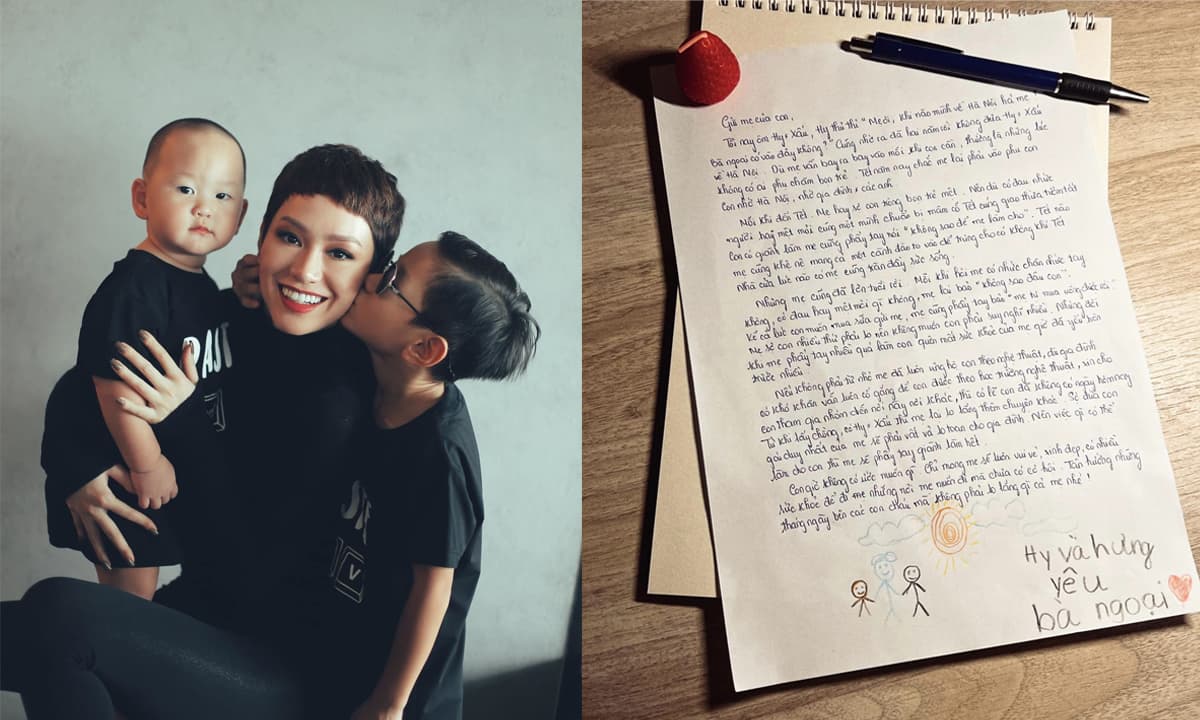 PAST
V
Gửi mẹ của con,
Tối nay ôm Hy + Xấu, Hy thủ thỉ "Mẹ ơi, khi nào mình về Hà Nội hả mẹ?
Bà ngoại có vào đây không?" Cũng nhờ ra đã hai năm rồi không đưa Hy + Xấu
về Hà Nội. Dù mẹ vẫn bay ra bay vào mỗi khi con cần, thường là những lúc
không có ai phụ chăm bọn trẻ. Tết năm nay chắc mẹ lại phải vào phụ con
Con nhớ Hà Nội, nhớ gia đình, các anh.
Mỗi khi đến Tết. Mẹ hay sợ con xông bọn trẻ mệt. Nên dù có đau nhức
người hay mệt mỏi cũng một mình chuẩn bị mâm cỗ Tết cúng giao thừa tiễn tất
Con có giành làm mẹ cũng phẩy tay nói "Không sao để mẹ làm cho". Tết nào
mẹ cũng khệ nệ mang cả một cành đào to vào để trưng cho có không khí Tết
Nhà cửa lúc nào có mẹ cũng tràn đầy sức sống.
Nhưng mẹ cũng đã lớn tuổi rồi. Mỗi khi hỏi mẹ có nhức chân nhức tay
không, có đau hay mệt mỏi gì không, mẹ lại bảo "không sao đâu con".
Kể cả lúc con muốn mua sữa gửi mẹ, mẹ cũng phẩy tay bảo "mẹ tự mua uống được rồi".
Mẹ sợ con nhiều thứ phải lo nên không muốn con phải suy nghĩ nhiều. Nhưng đôi
khi mẹ phẩy tay nhiều quá làm con quên mất sức khỏe của mẹ giờ đã yếu hơn
trước nhiều.
Nếu không phải từ nhỏ mẹ đã luôn ủng hộ con theo nghệ thuật, dù gia đình
có khó khăn vẫn luôn cố gắng để con được theo học trường nghệ thuật, xin cho
con tham gia nhóm đến nơi này nơi khác, thì có lẽ con đã không có ngày hôm nay
Từ khi lấy chồng, có Hy + Xấu thì mẹ lại lo lắng thêm chuyện khác. Sợ đứa con
gái duy nhất của mẹ sẽ phải vất vả lo toan cho gia đình. Nên việc gì có thể
làm cho con thì mẹ sẽ phẩy tay giành làm hết.
Con giờ không có ước muốn gì. Chỉ mong mẹ sẽ luôn vui vẻ, xinh đẹp, có nhiều
sức khỏe để đi mẹ những nơi mẹ muốn đi mà chưa có cơ hội. Tận hưởng những
tháng ngày bên các con cháu mà không phải lo lắng gì cả mẹ nhé!
Hy và hưng
yêu
bà ngoại